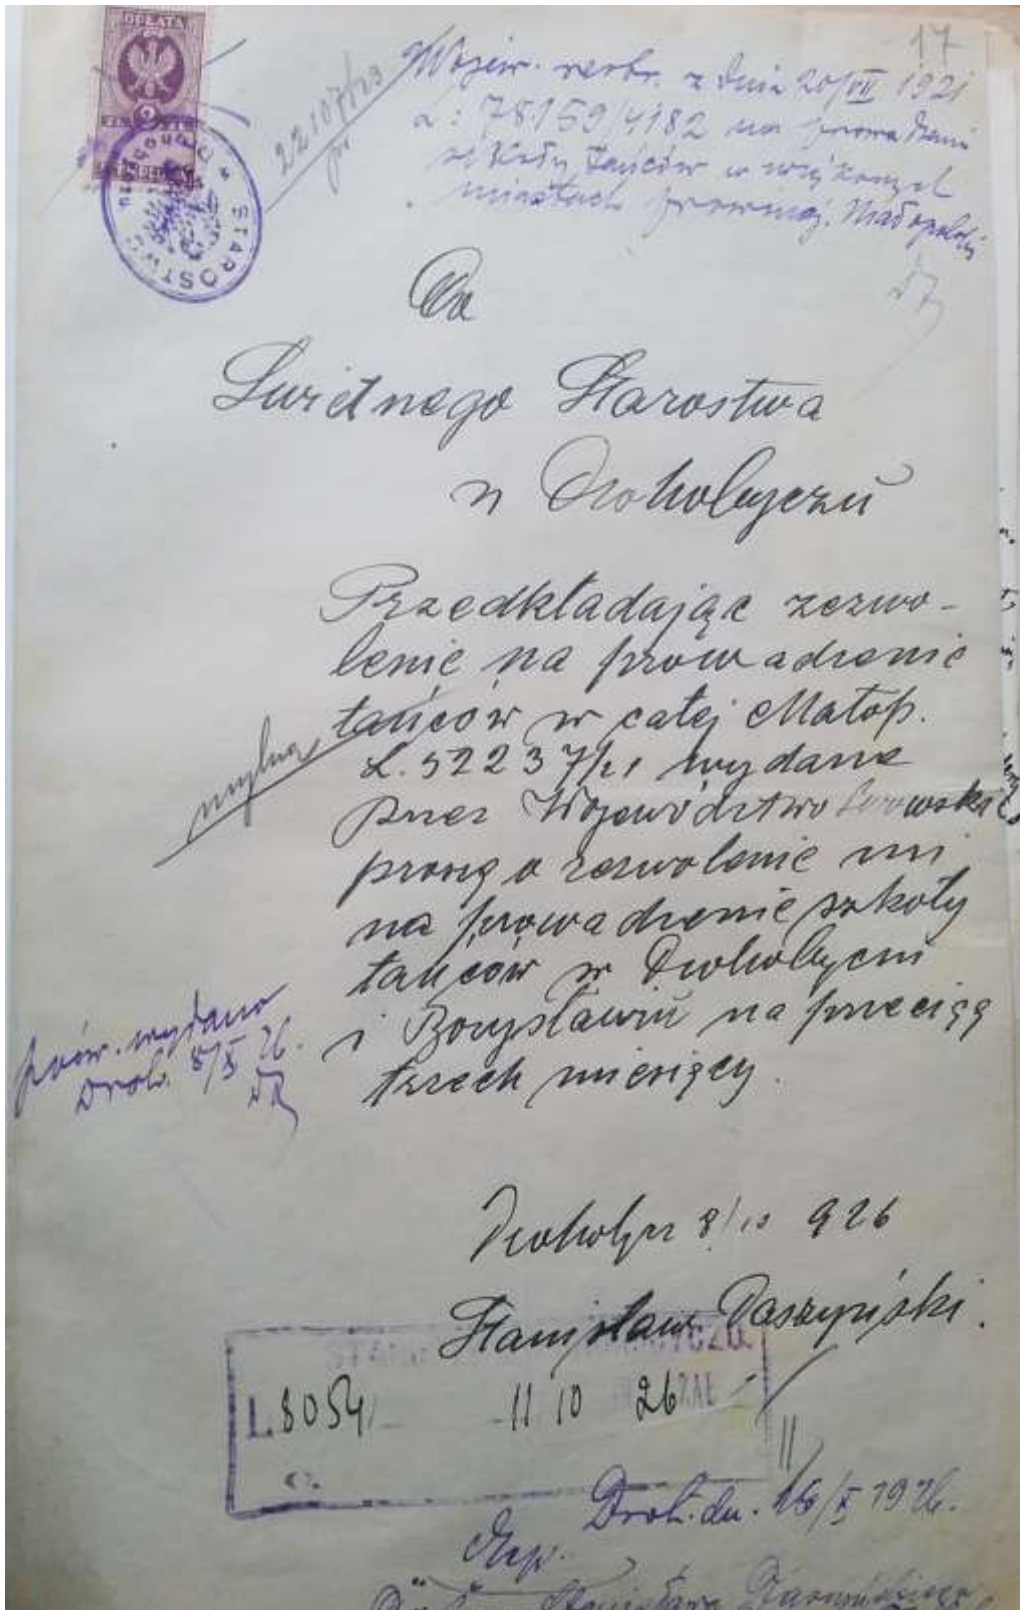 17
OPŁATA
2
STAROSTWO
z dnia 20/VII 1921
a: 78159/4182 na prowadzenie
szkoły tańców w większych
miastach prowincj. Małopolski
Do
Swietnego Starostwa
w Drohobyczu
Przedkładając zezwo-
lenie na prowadzenie
tańców w całej Małop.
L. 52237/21 wydane
mylna
przez Województwo Lwowskie
proszę o zezwolenie mi
na prowadzenie szkoły
tańców w Drohobyczu
i Borysławiu na przeciąg
trzech miesięcy.
wydano
Droh. 8/X 26.
Drohobycz 8/10 926
Stanisław Daszyński.
L. 8054 11 10 26
Droh. dn. 16/X 1926.
Stanisława